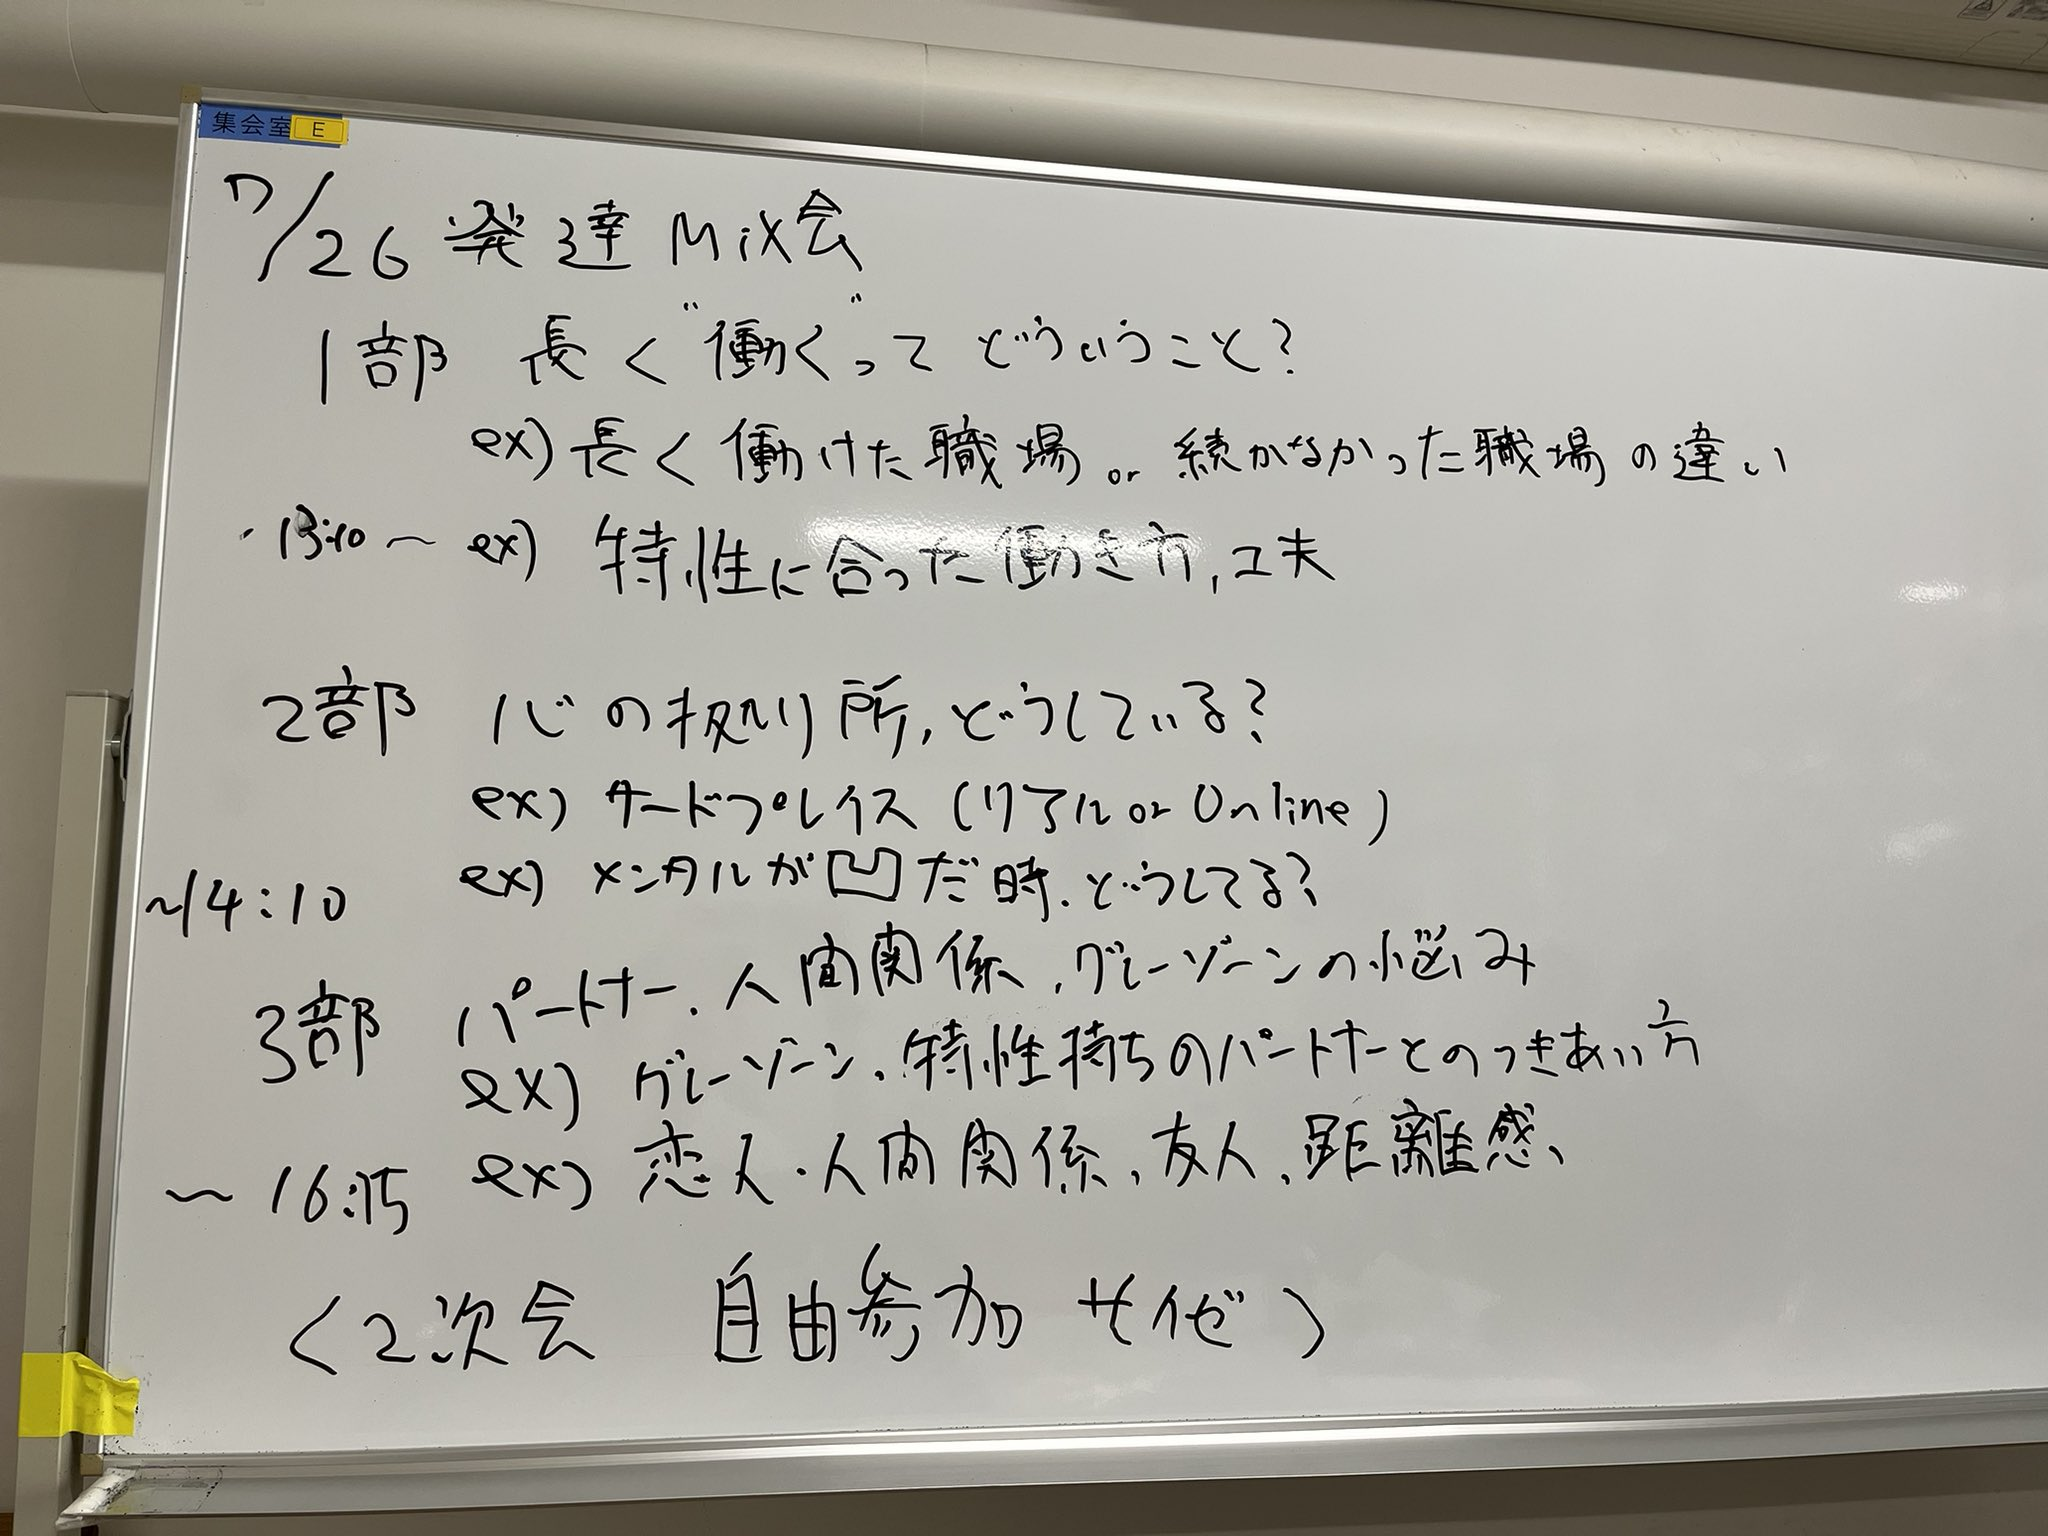 集会室 E
7/26 発達 Mix会
1部 長く"働く"ってどういうこと?
ex) 長く働けた職場 or 続かなかった職場の違い
・13:10〜 ex) 特性に合った働き方, 工夫
2部 心の拠り所, どうしている?
ex) サードプレイス (リアル or Online)
ex) メンタルが凹だ時、どうしてる?
~14:10
3部 パートナー、人間関係, グレーゾーンの悩み
ex) グレーゾーン、特性持ちのパートナーとのつきあい方
〜16:15 ex) 恋人・人間関係, 友人, 距離感、
<2次会 自由参加 サイゼ>